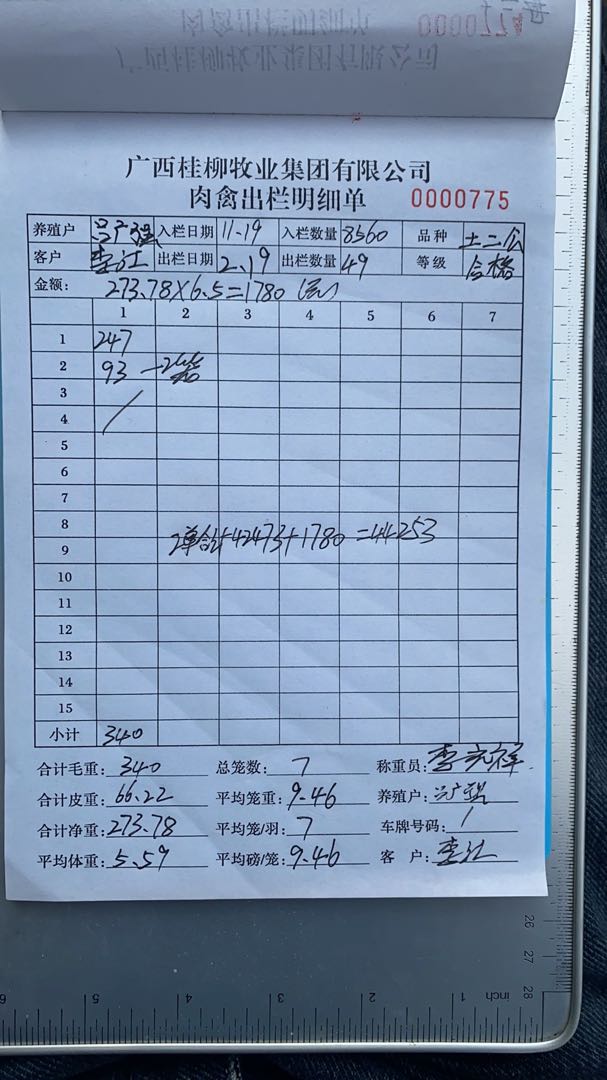 0000774
肉禽出栏明细单
广西桂柳牧业集团有限公司
广西桂柳牧业集团有限公司
肉禽出栏明细单 0000775
养殖户 入栏日期 11-19 入栏数量 8560 品种 土二公
客户 李江 出栏日期 2.19 出栏数量 49 等级 合格
金额: 273.78×6.5=1780
1 2 3 4 5 6 7
1 247
2 93
3
4
5
6
7
8
2单合计42473+1780=44253
9
10
11
12
13
14
15
小计 340
合计毛重: 340 总笼数: 7 称重员:
合计皮重: 66.22 平均笼重: 9.46 养殖户:
合计净重: 273.78 平均笼/羽: 7 车牌号码: /
平均体重: 5.59 平均磅/笼: 9.46 客 户: 李江
26
27
28
6 5 4 3 2 1 inch